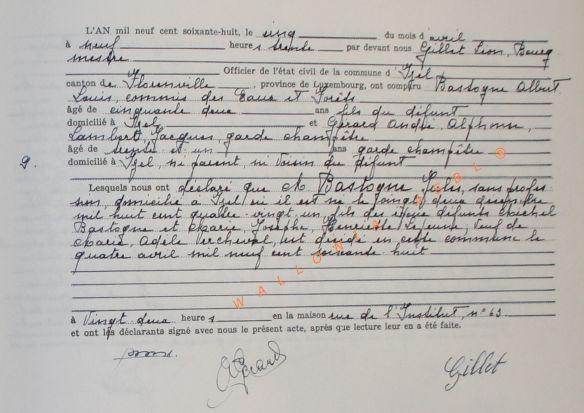 L'AN mil neuf cent soixante-huit, le cinq du mois d'avril
à neuf heures trente par devant nous Gillet Léon, Bourg
mestre
Officier de l'état civil de la commune d'Izel
canton de Florenville, province de Luxembourg, ont comparu Bastogne Albert
Louis, commis des Eaux et Forêts
âgé de cinquante deux ans fils du défunt
domicilié à Izel et Gérard André, Alphonse,
Lambert, Jacques, garde champêtre
âgé de trente et un ans garde champêtre
9. domicilié à Izel, ni parent, ni voisin du défunt
Lesquels nous ont déclaré que Bastogne Jules, sans profes
sion, domicilié à Izel où il est né le deux décembre
mil huit cent quatre-vingt un, fils des défunts Michel
Bastogne et Marie, Josèphe, Henriette Lejeune, veuf de
Marie, Adèle est décédé en cette commune le
quatre avril mil neuf cent soixante huit
à Vingt deux heures en la maison rue de l'Institut, n° 63
et ont les déclarants signé avec nous le présent acte, après que lecture leur en a été faite.
Gérard Gillet
WALLONIA